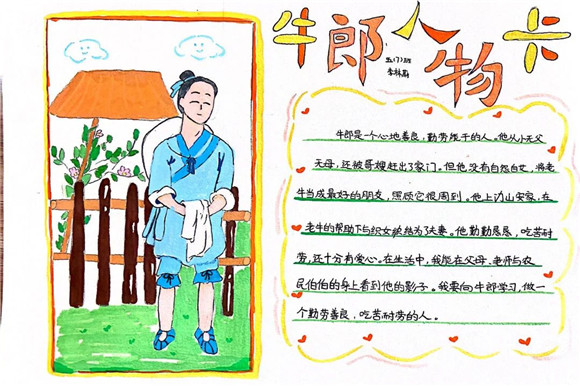 牛郎人物卡
五(7)班
牛郎是一个心地善良,勤劳能干的人。他从小无父
无母,还被哥嫂赶出了家门。但他没有自怨自艾,将老
牛当成最好的朋友,照顾它很周到。他上边山安家,在
老牛的帮助下与织女结为了夫妻。他勤勤恳恳,吃苦耐
劳,还十分有爱心。在生活中,我能在父母、老师与农
民伯伯的身上看到他的影子。我要向牛郎学习,做一
个勤劳善良,吃苦耐劳的人。